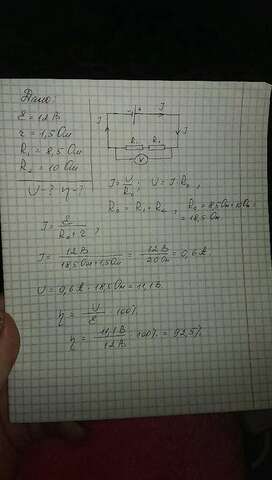 Дано:
ε = 12 В
r = 1,5 Ом
R₁ = 8,5 Ом
R₂ = 10 Ом
U - ? η - ?
- + I
I I
R₁ R₂
V
I = U/R₀; U = I·R₀,
R₀ = R₁ + R₂, R₀ = 8,5 Ом + 10 Ом =
= 18,5 Ом
I = ε/(R₀ + r),
I = 12 В/(18,5 Ом + 1,5 Ом) = 12 В/20 Ом = 0,6 А.
U = 0,6 А · 18,5 Ом = 11,1 В.
η = U/ε 100%
η = 11,1 В/12 В · 100% = 92,5%